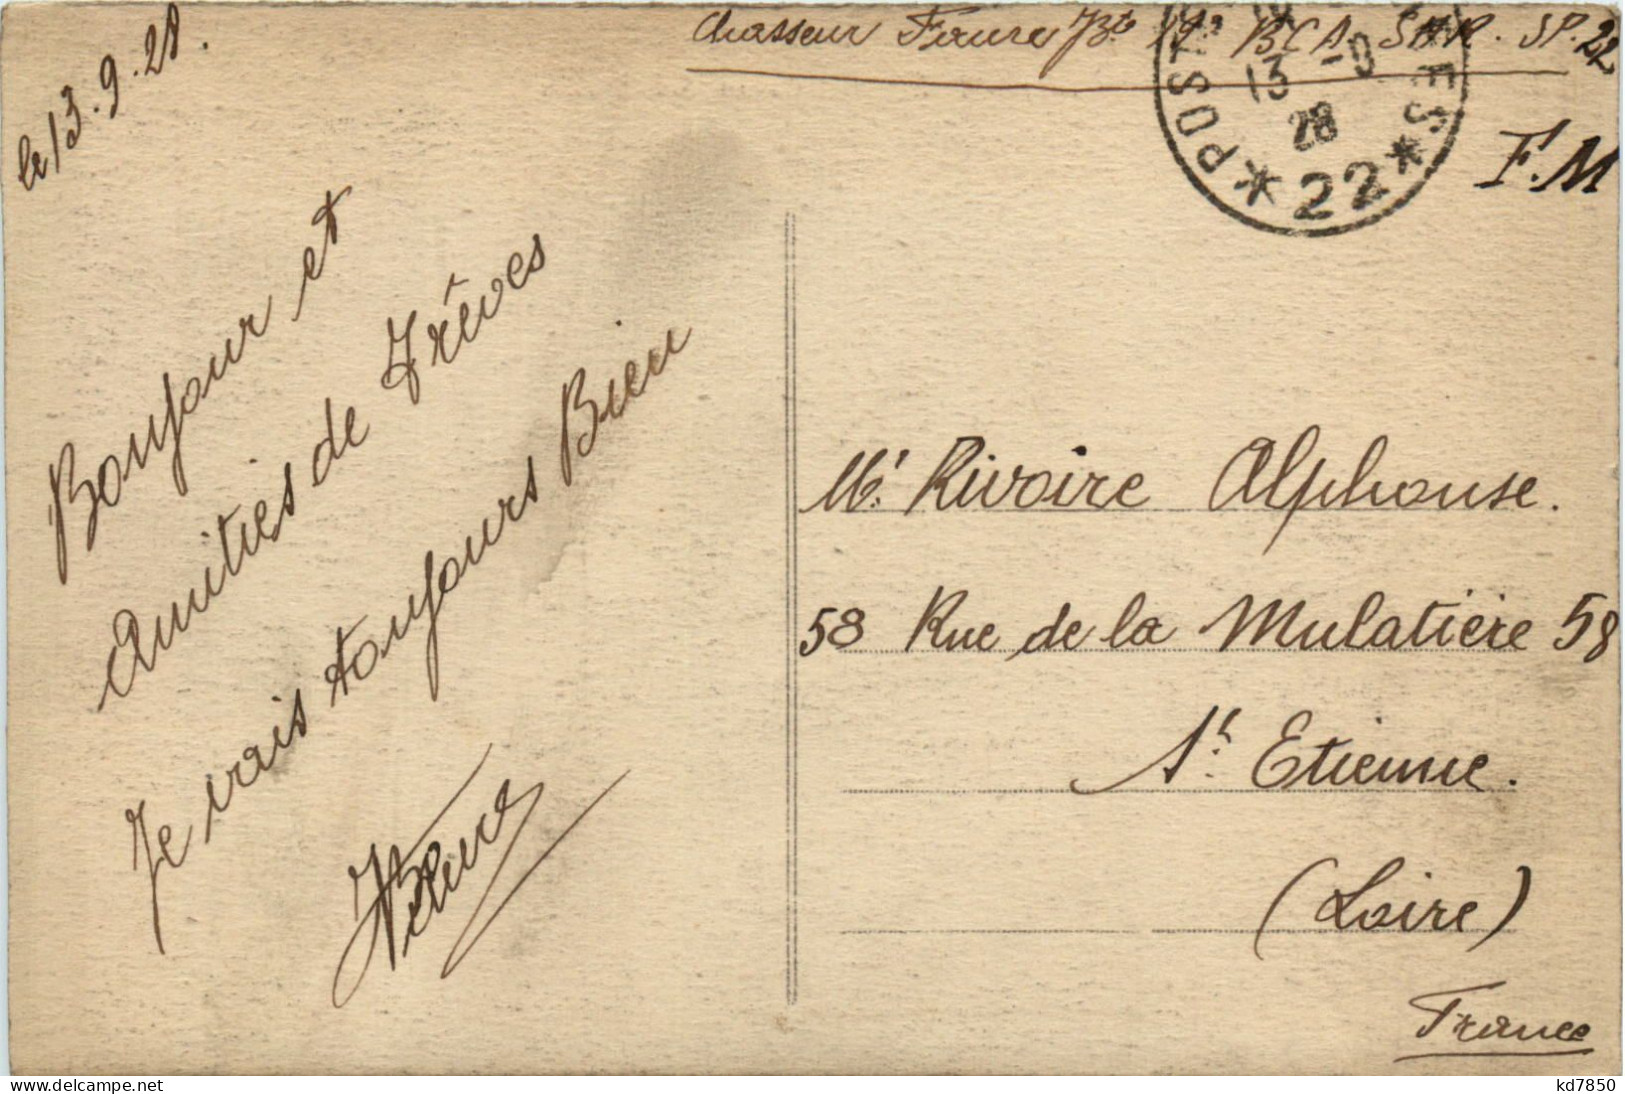 le 13.9.28.
Chasseur Faure Bte BCA. SHR. SP. 22
POST ES
13 -9
28
* 22 *
F.M
Bonjour et
Amitiés de Trêves
Je vais toujours Bien
Faure
Mr. Rivoire Alphonse.
58 Rue de la Mulatière 58
St. Etienne.
(Loire)
France
kd7850